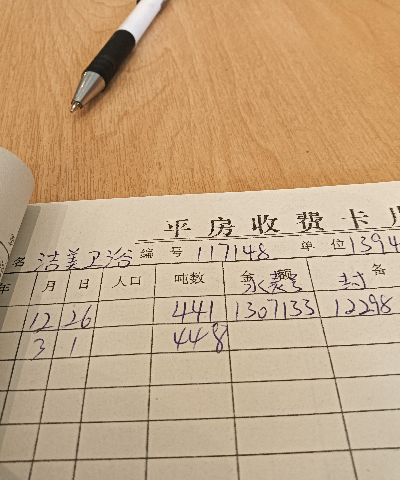 平房收费卡片
名 洁美卫浴 编号 117148 单位 1394
年 月 日 人口 吨数 金额 水表号 备 封
12 26 441 1307133 12298
3 1 448